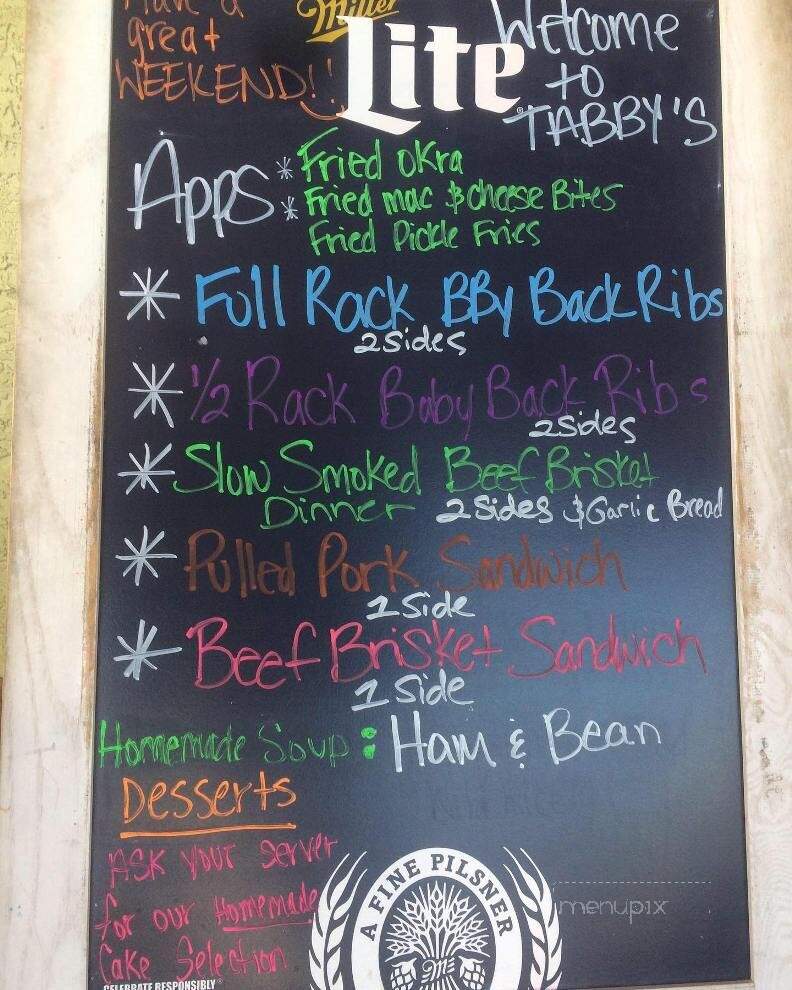 Have a
great
WEEKEND!!
Miller
Lite
Welcome
to
TABBY'S
Apps * Fried OKra
* Fried mac & cheese Bites
Fried Pickle Fries
* Full Rack BBy Back Ribs
2 Sides
* 1/2 Rack Baby Back Ribs
2 Sides
* Slow Smoked Beef Brisket
Dinner 2 Sides & Garlic Bread
* Pulled Pork Sandwich
1 Side
* Beef Brisket Sandwich
1 Side
Homemade Soup: Ham & Bean
Desserts
ASK your server
for our Homemade
Cake Selection
A FINE PILSNER
menupix
CELEBRATE RESPONSIBLY